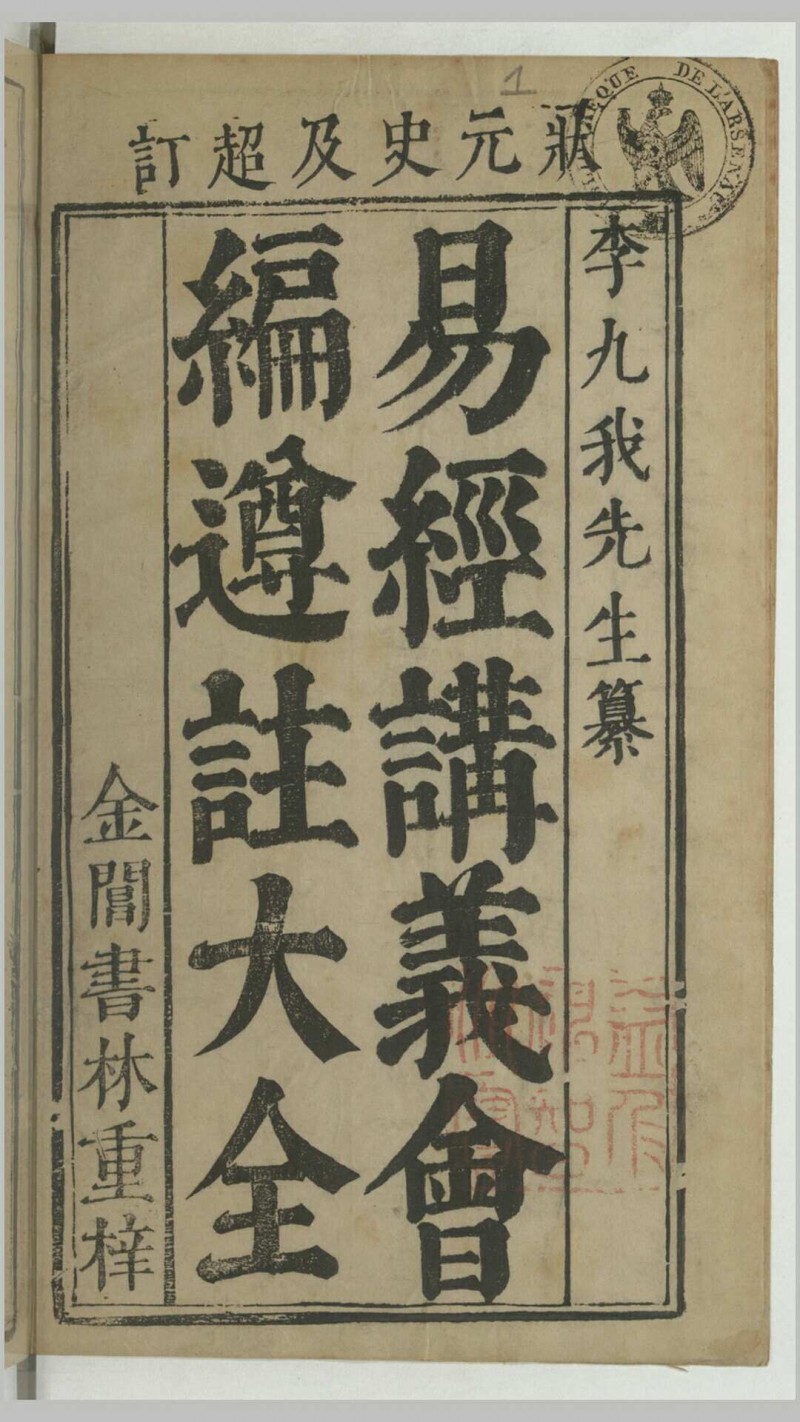 1
BIBLIOTHEQUE DE L'ARSENAL
狀元史及超訂
李九我先生纂
易經講義會
編遵註大全
金閶書林重梓